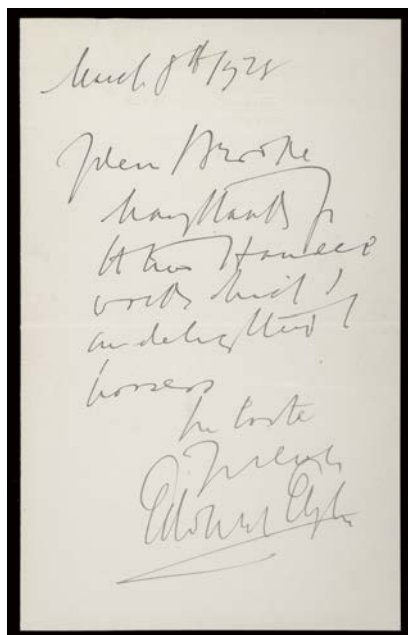 March 8th 1921
Dear Brooke
Many thanks for
the two
works which I
am delighted to
possess
In haste
Yrs
Edward Elgar